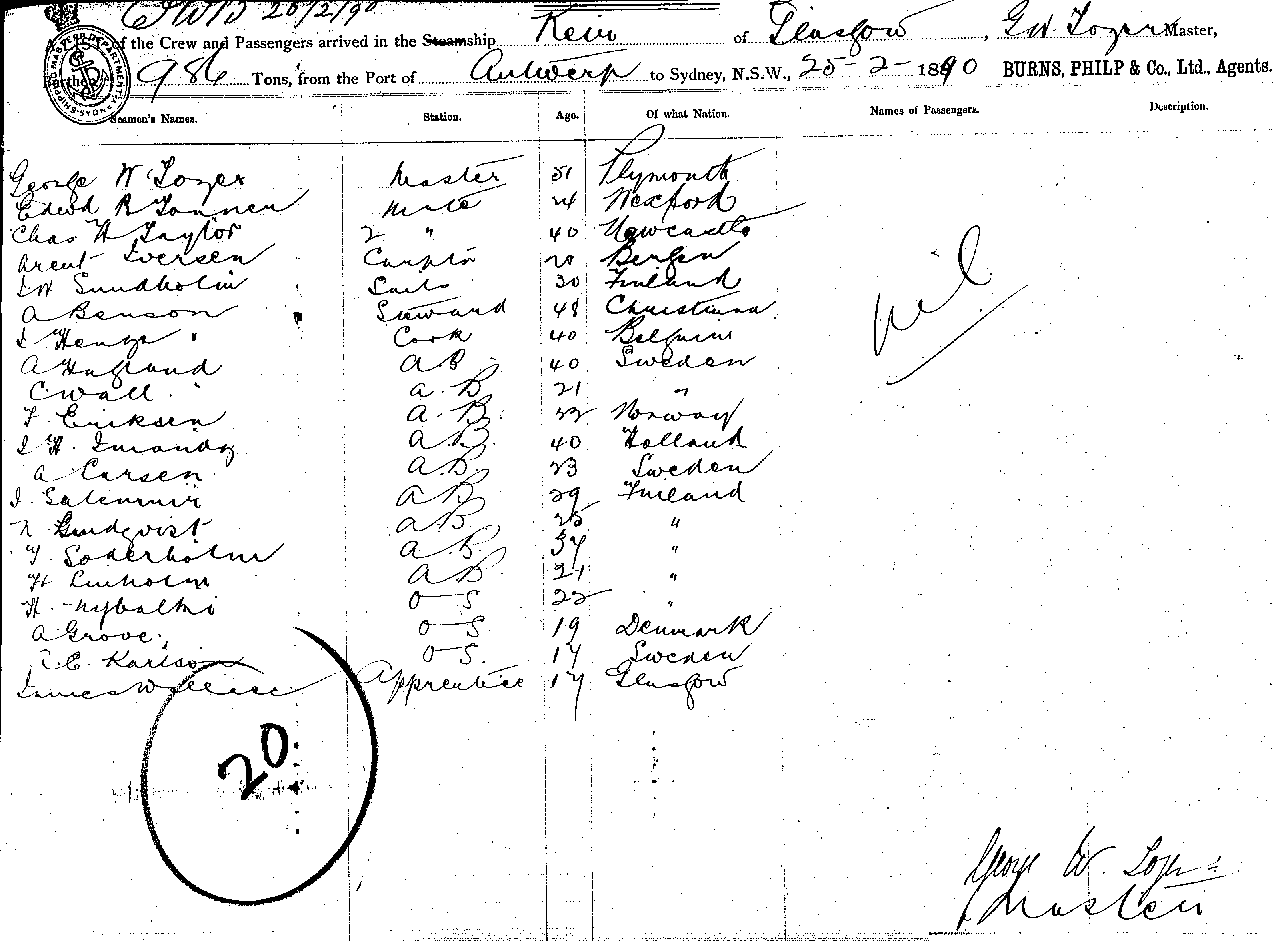 20/2/90
of the Crew and Passengers arrived in the Steamship Keir of Glasgow, G W Tozer Master,
986 Tons, from the Port of Antwerp to Sydney, N.S.W., 25-2-1890 BURNS, PHILP & Co., Ltd., Agents.
Seamen's Names. Station. Age. Of what Nation. Names of Passengers. Description.
George W Tozer Master 51 Plymouth
Edwd R Tanner Mate 24 Wexford
Chas H Taylor 2 " 40 Newcastle
Arent Iversen Carptr 20 Bergen
Sundholm Sails 30 Finland
A Benson Steward 48 Christiana
Cook 40 Belgium
A Hagland AB 40 Sweden
C Wall A.B 21 "
F Eriksen A.B. 22 Norway
AB. 40 Holland
A Carsen AB. 23 Sweden
AB 29 Finland
Lindqvist AB 25 "
Soderholm AB 37 "
H Linholm AB 21 "
H O-S 22 "
A Grove O-S 19 Denmark
C. Karlson O-S. 17 Sweden
James Wallace Apprentice 17 Glasgow
nil
20
George W. Tozer
Master